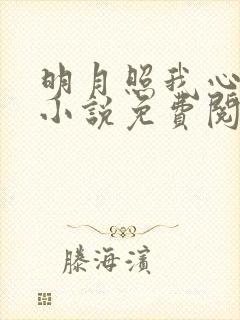 明月照我心
小說免費閱
滕海濱